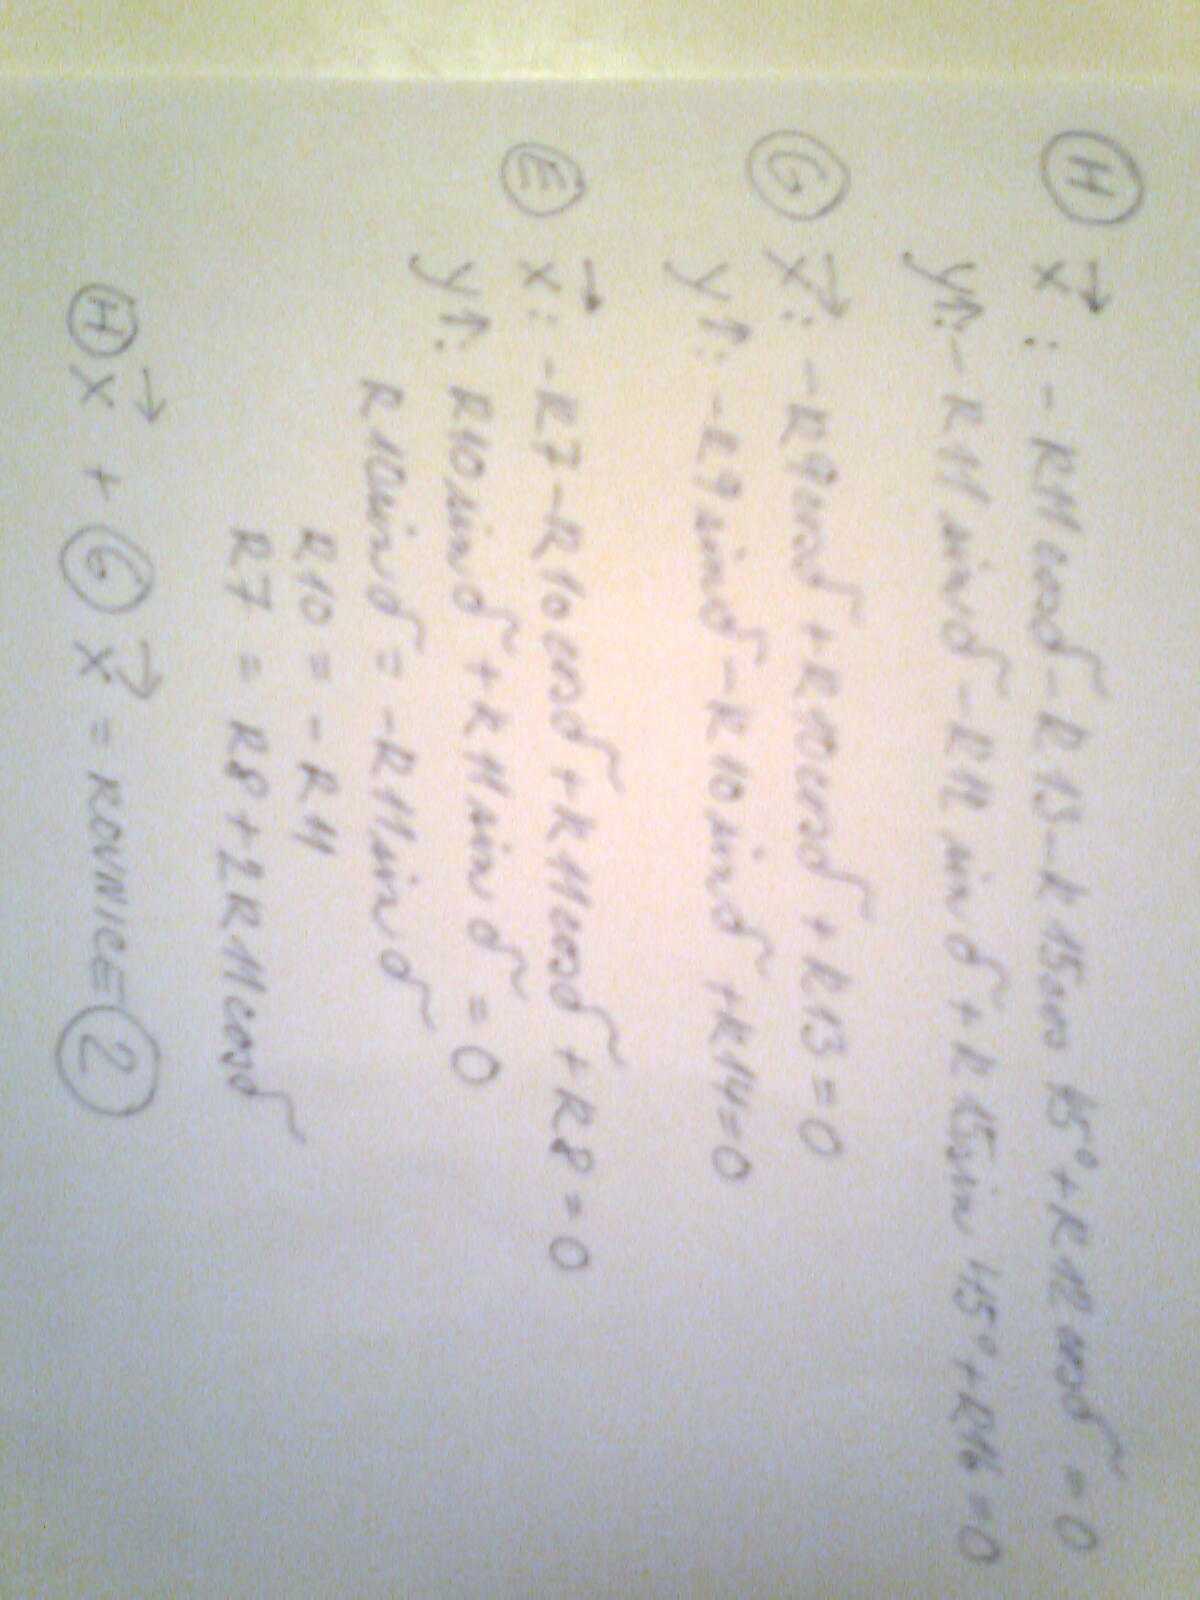 Ⓗ x→: -R11cosδ - R13 - R15cos 45° + R12cosδ = 0
y↑: -R11sinδ - R12sinδ + R15sin 45° + R16 = 0
Ⓖ x→: -R9cosδ + R10cosδ + R13 = 0
y↑: -R9sinδ - R10sinδ + R14 = 0
Ⓔ x→: -R7 - R10cosδ + R11cosδ + R8 = 0
y↑: R10sinδ + R11sinδ = 0
R10sinδ = -R11sinδ
R10 = -R11
R7 = R8 + 2R11cosδ
Ⓗ x→ + Ⓖ x→ = ROVNICE ②